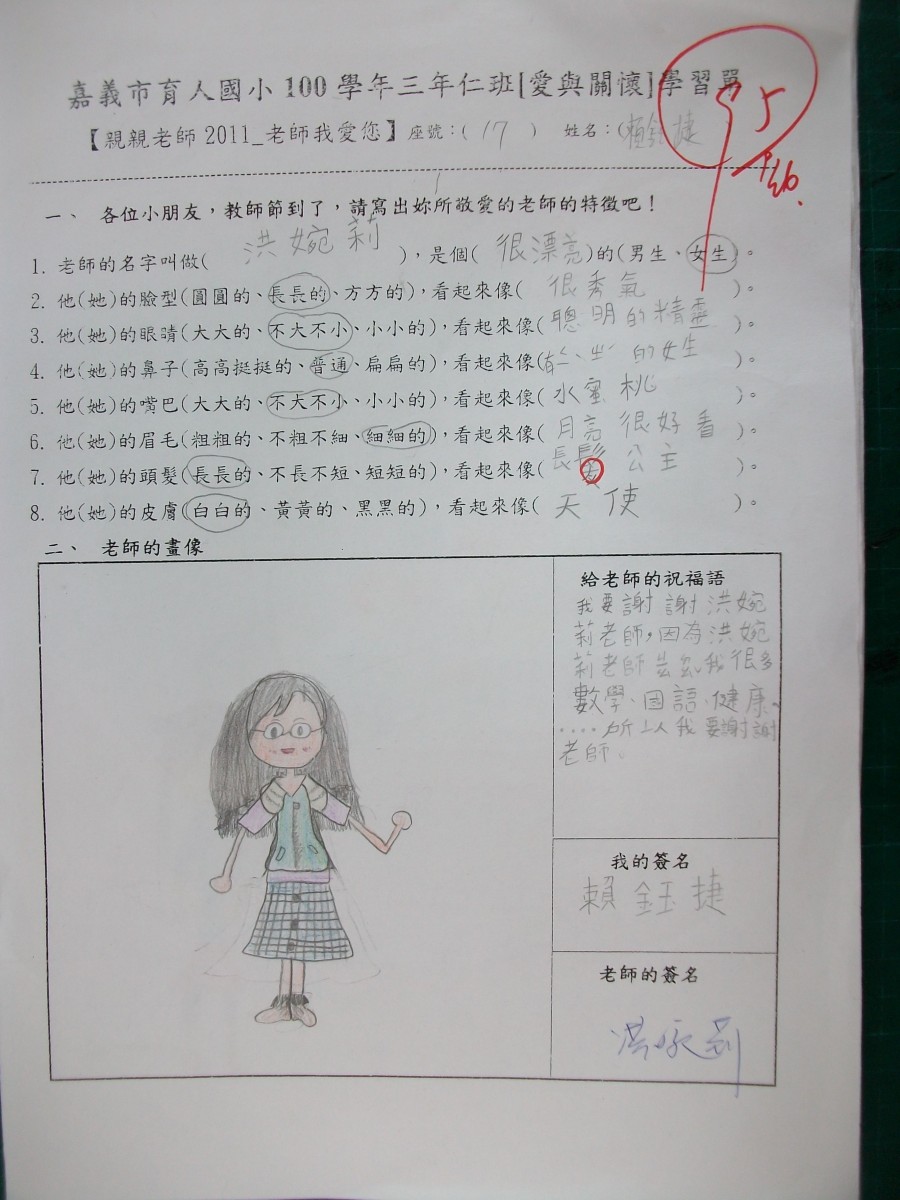 嘉義市育人國小100學年三年仁班[愛與關懷]學習單
95
【親親老師2011_老師我愛您】座號:( 17 ) 姓名:(賴鈺捷
一、 各位小朋友，教師節到了，請寫出妳所敬愛的老師的特徵吧！
1. 老師的名字叫做( 洪婉莉 )，是個( 很漂亮)的(男生、女生)。
2. 他(她)的臉型(圓圓的、長長的、方方的)，看起來像( 很秀氣 )。
3. 他(她)的眼睛(大大的、不大不小、小小的)，看起來像(聰明的精靈 )。
4. 他(她)的鼻子(高高挺挺的、普通、扁扁的)，看起來像( ㄅㄧˋ 的女生 )。
5. 他(她)的嘴巴(大大的、不大不小、小小的)，看起來像(水蜜桃 )。
6. 他(她)的眉毛(粗粗的、不粗不細、細細的)，看起來像( 月亮很好看 )。
7. 他(她)的頭髮(長長的、不長不短、短短的)，看起來像(長髮公主 )。
8. 他(她)的皮膚(白白的、黃黃的、黑黑的)，看起來像( 天使 )。
二、 老師的畫像
給老師的祝福語
我要謝謝洪婉
莉老師，因為洪婉
莉老師 我很多
數學、國語、健康、
....所以我要謝謝
老師。
我的簽名
賴鈺捷
老師的簽名
洪婉莉